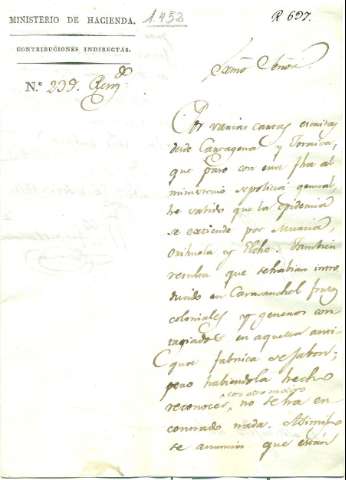 MINISTERIO DE HACIENDA. 1.452 R 697.
CONTRIBUCIONES INDIRECTAS.
N.º 239.
Por varias cartas escritas
desde Cartagena y
que paso con esta fha al
ministerio de policia general,
he sabido que la epidemia
se extiende por Murcia,
Orihuela y Elche. Tambien
resulta que se habian intro
ducido en Caravanchel
coloniales y generos con
tagiados en aquella anti
gua fabrica de Jabon;
pero habiendola hecho
reconocer, no se ha en
contrado nada. Asimismo
se anuncia que están